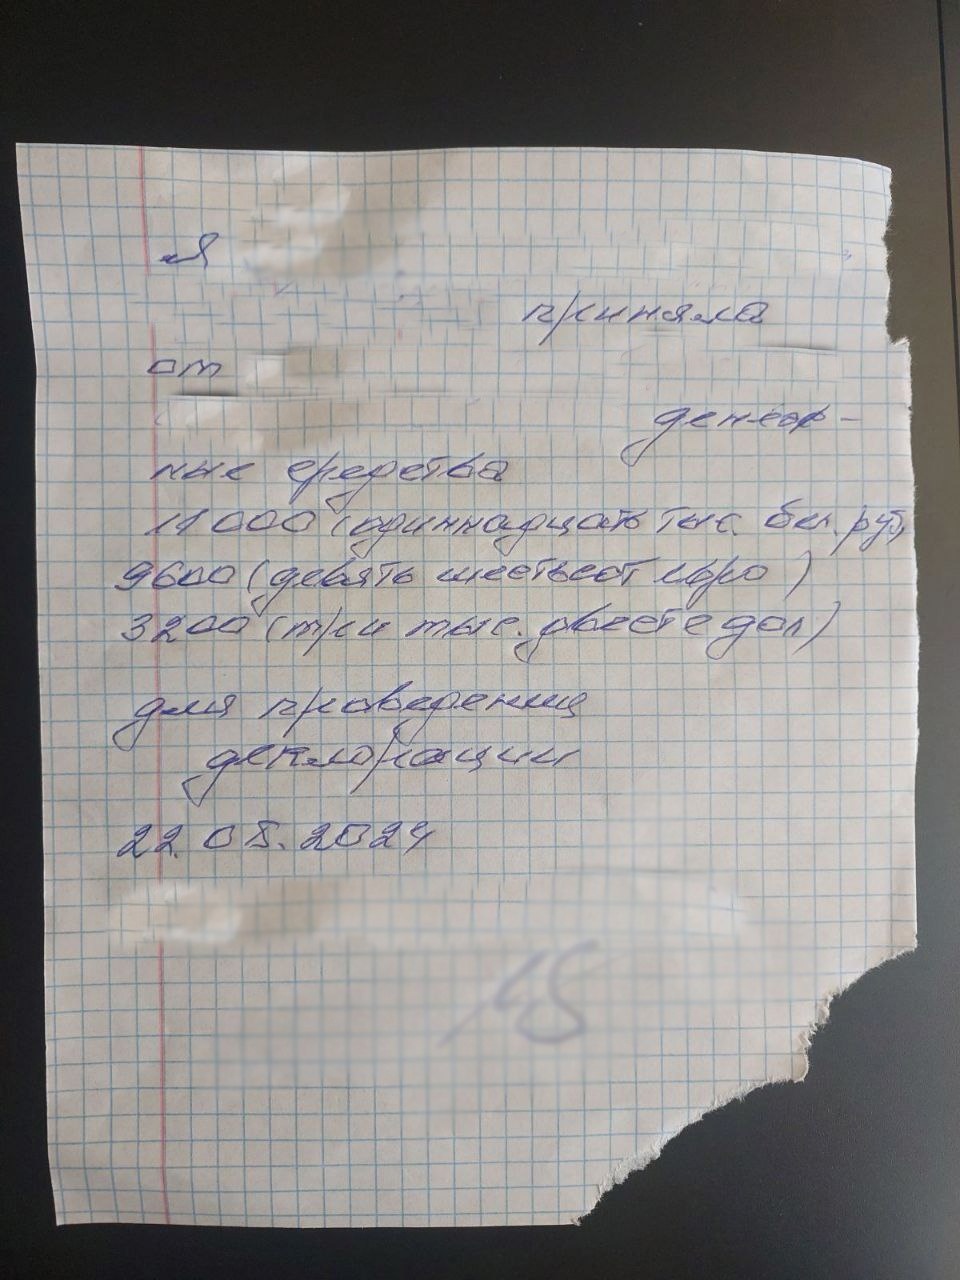 Я
приняла
от
денеж-
ные средства
11000 (одиннадцать тыс. бел. руб,
9600 (девять шестьсот евро)
3200 (три тыс. двести дол)
для проведения
декларации
22.08.2024